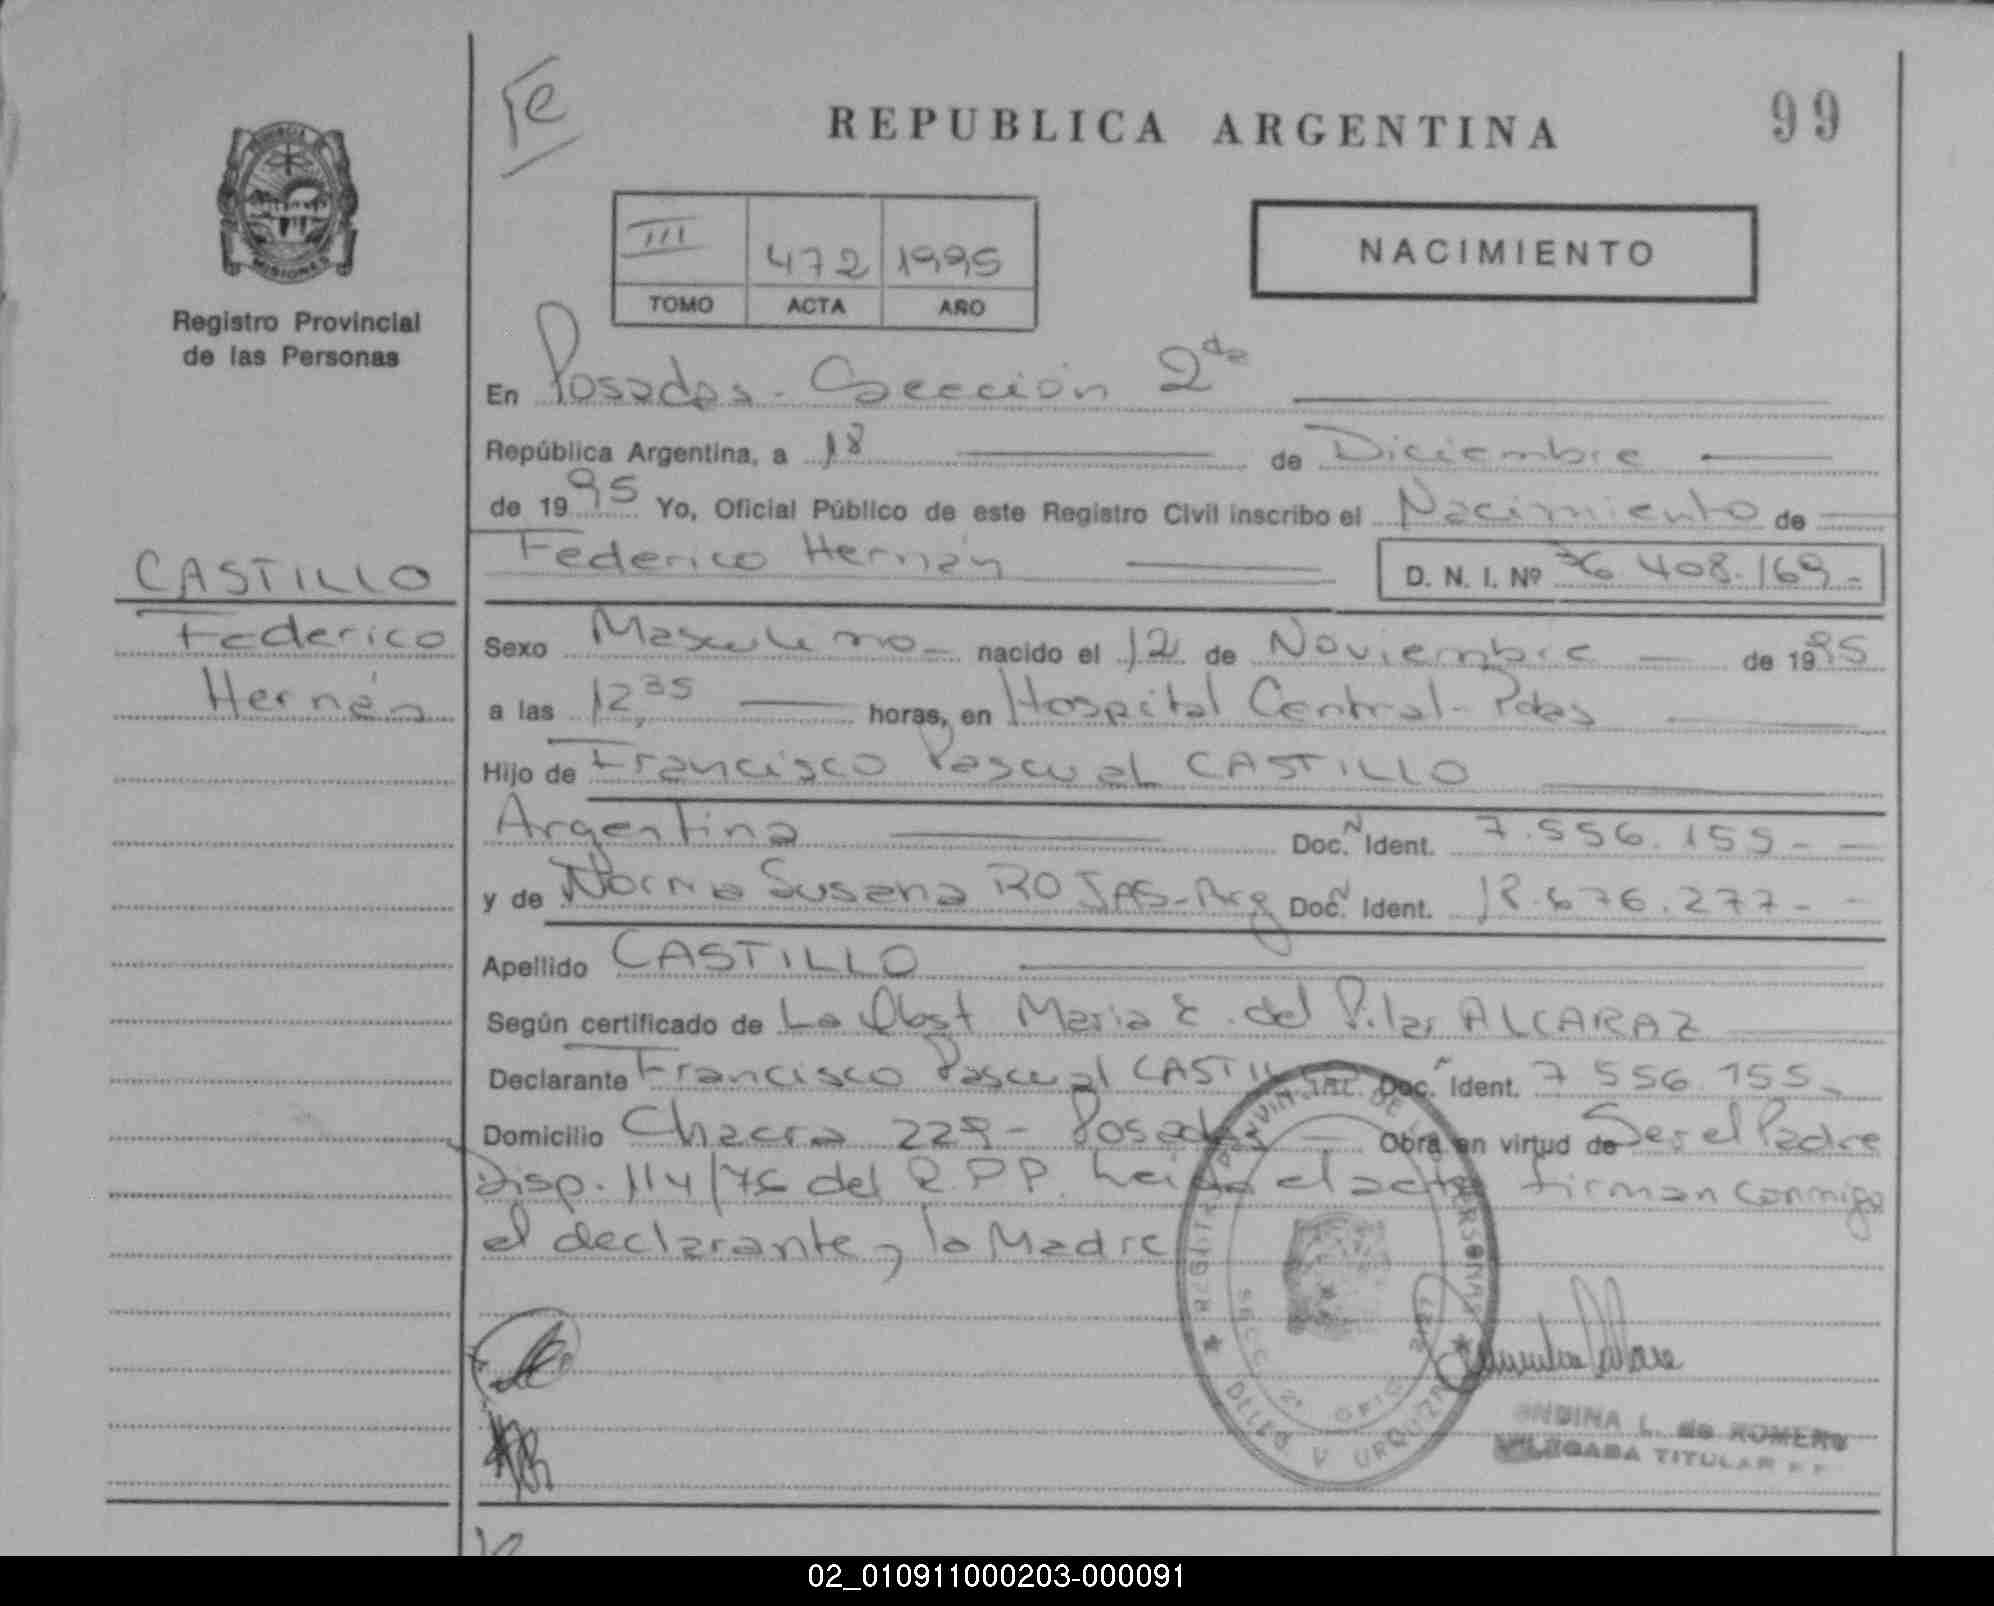 Fe
REPUBLICA ARGENTINA
99
PROVINCIA
MISIONES
Registro Provincial
de las Personas
III 472 1995
TOMO ACTA AÑO
NACIMIENTO
En Posadas - Sección 2da
República Argentina, a 18 de Diciembre
de 1995 Yo, Oficial Público de este Registro Civil inscribo el Nacimiento de
Federico Hernán D. N. I. Nº 36 408.169.-
CASTILLO
Federico
Hernán
Sexo Masculino - nacido el 12 de Noviembre - de 1995
a las 12,35 horas, en Hospital Central - Pdas
Hijo de Francisco Pascual CASTILLO
Argentina Doc. N Ident. 7.556.155 - -
y de Norma Susana ROJAS - Arg Doc. N Ident. 18.676.277 - -
Apellido CASTILLO
Según certificado de La Obst Maria E. del Pilar ALCARAZ
Declarante Francisco Pascual CASTILLO Doc. Ident. 7 556.155 -
Domicilio Chacra 229 - Posadas - Obra en virtud de Ser el Padre
Disp. 114/76 del R.P.P. Leída el acta firman conmigo
el declarante y la Madre
REGISTRO PROVINCIAL DE PERSONAS
SECC. 2ª OFIC.
DELEG V URQUIZA
L. de ROMERO
DELEGADA TITULAR
02_010911000203-000091